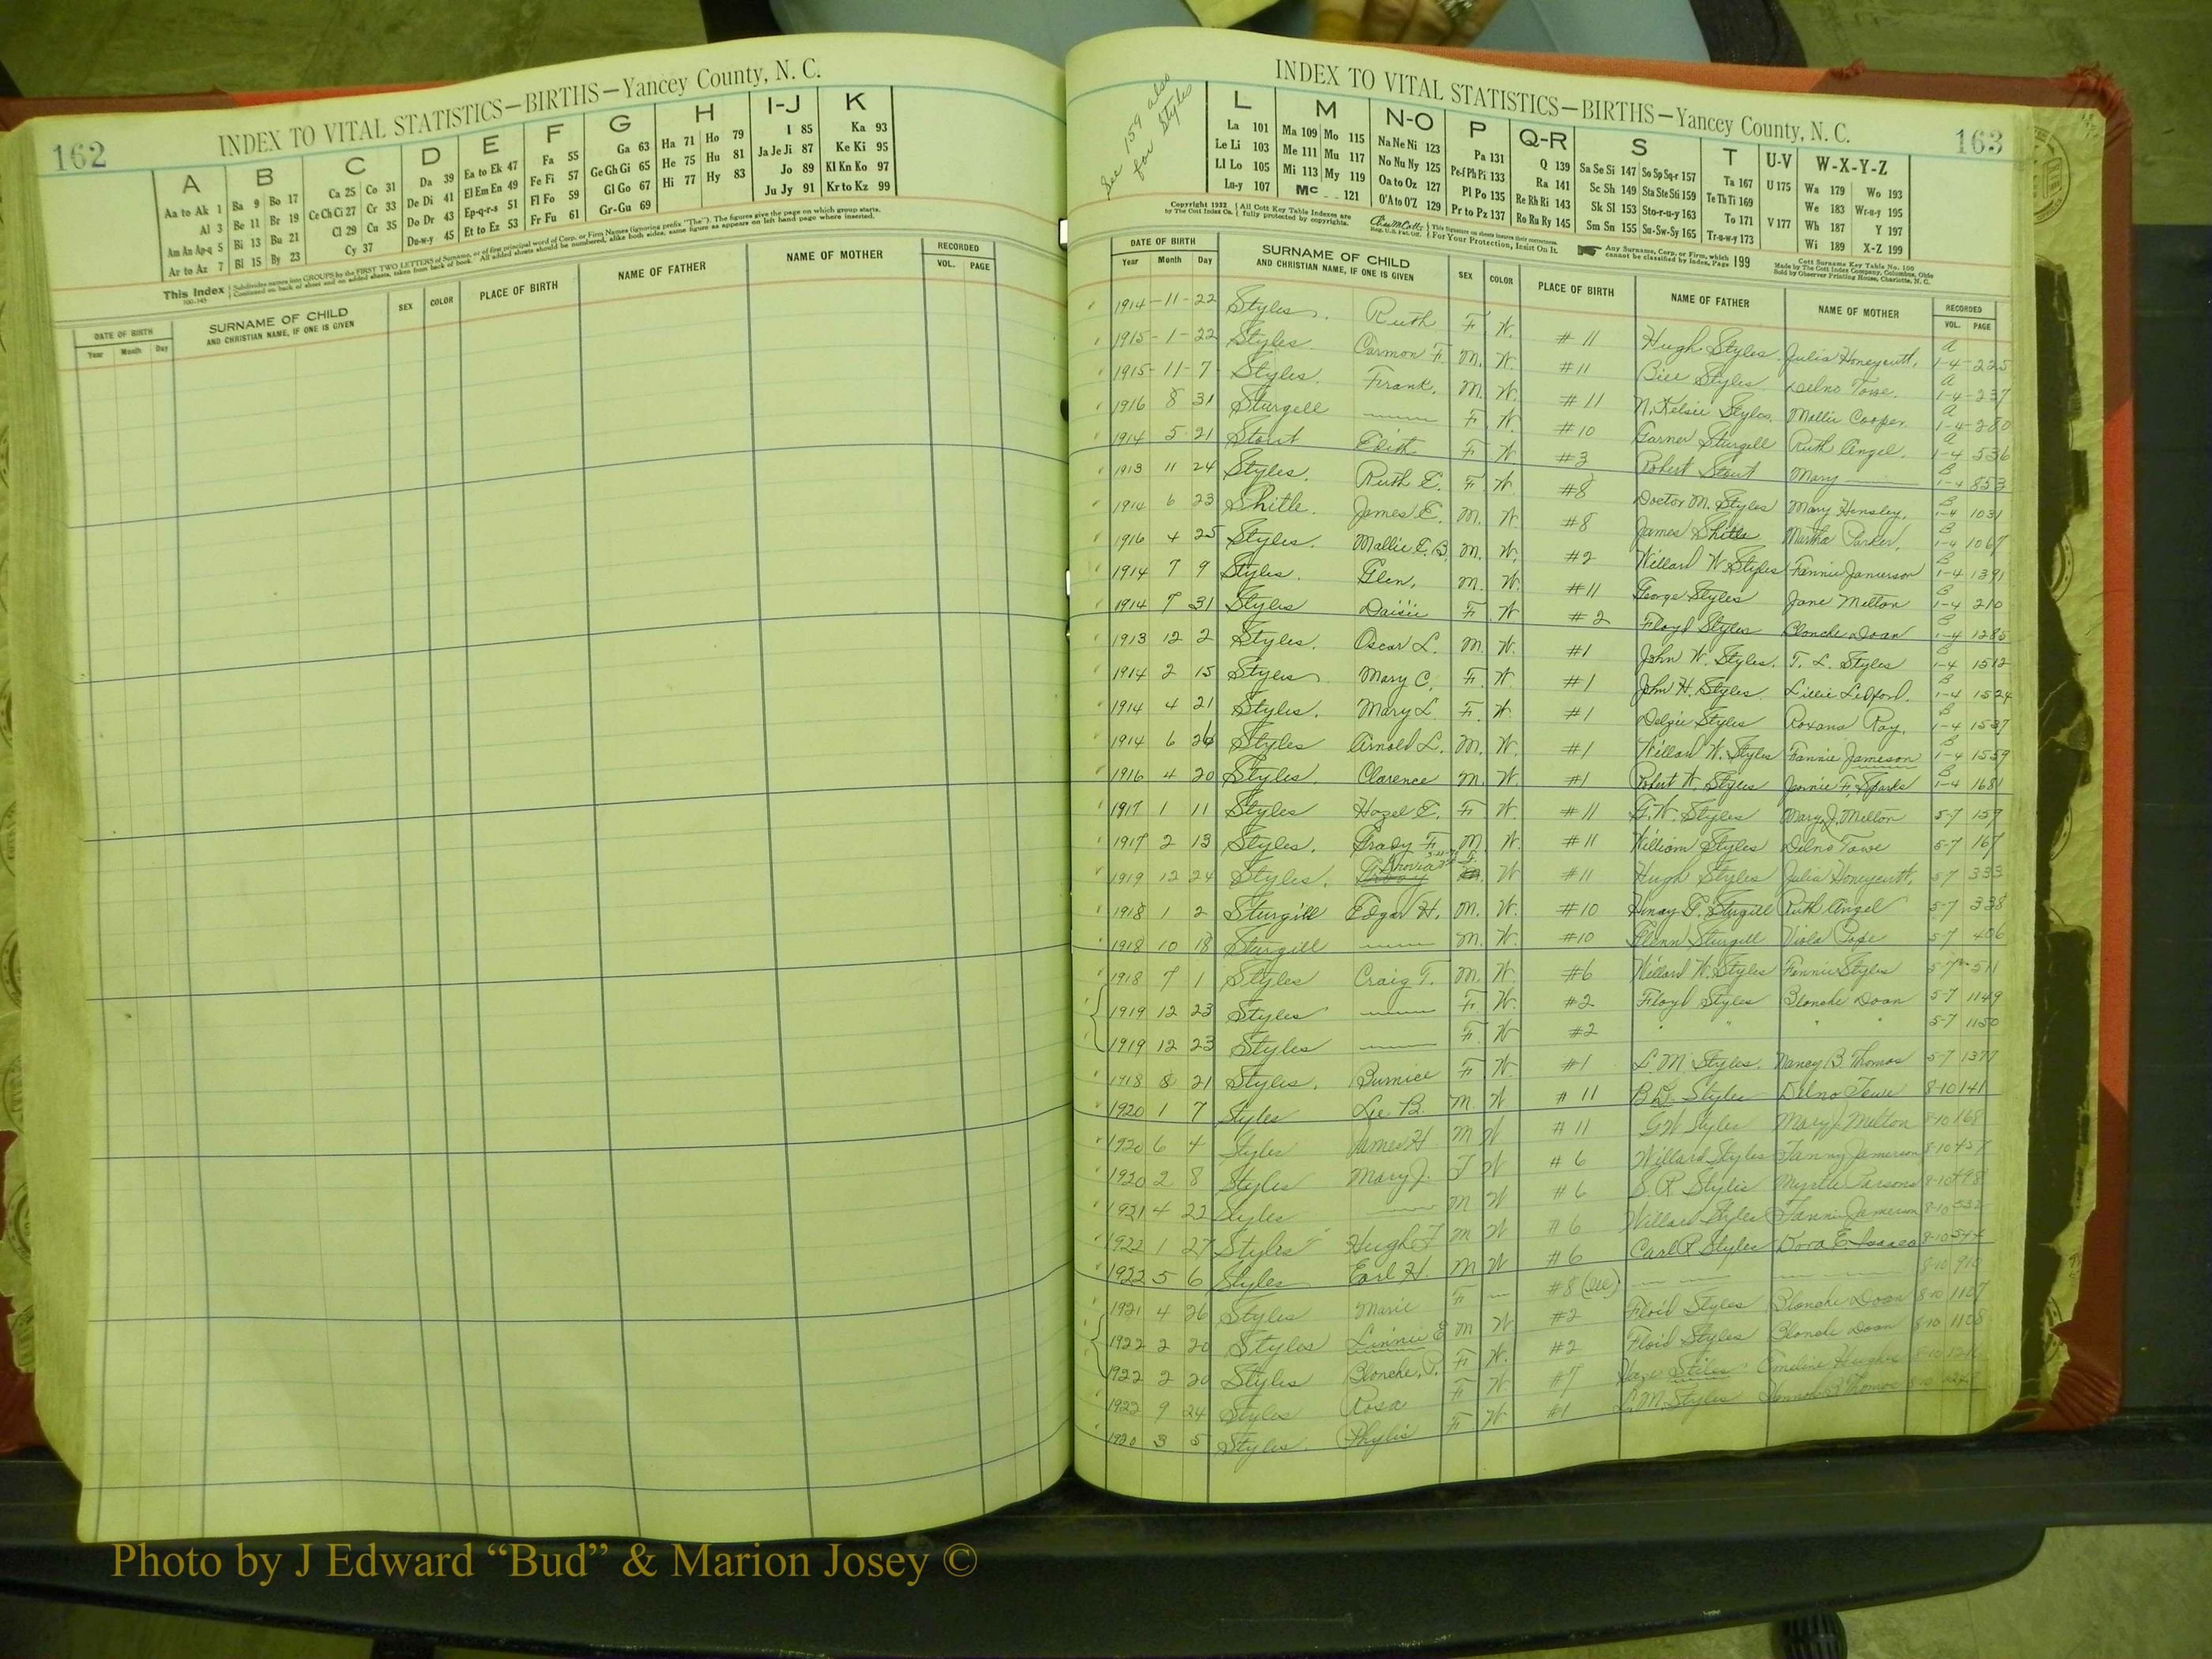 162
INDEX TO VITAL STATISTICS—BIRTHS—Yancey County, N. C.
A B C D E F G H I-J K
Aa to Ak 1 Ba 9 Bo 17 Ca 25 Co 31 Da 39 Ea to Ek 47 Fa 55 Ga 63 Ha 71 Ho 79 I 85 Ka 93
Al 3 Be 11 Br 19 Ce Ch Ci 27 Cr 33 De Di 41 El Em En 49 Fe Fi 57 Ge Gh Gi 65 He 75 Hu 81 Ja Je Ji 87 Ke Ki 95
Am An Ap-q 5 Bi 13 Bu 21 Cl 29 Cu 35 Do Dr 43 Ep-q-r-s 51 Fl Fo 59 Gl Go 67 Hi 77 Hy 83 Jo 89 Kl Kn Ko 97
Ar to Az 7 Bl 15 By 23 Cy 37 Du-w-y 45 Et to Ez 53 Fr Fu 61 Gr-Gu 69 Ju Jy 91 Kr to Kz 99
This Index
DATE OF BIRTH SURNAME OF CHILD SEX COLOR PLACE OF BIRTH NAME OF FATHER NAME OF MOTHER RECORDED
Year Month Day AND CHRISTIAN NAME, IF ONE IS GIVEN VOL. PAGE
See 159 also
for Styles
INDEX TO VITAL STATISTICS—BIRTHS—Yancey County, N. C.
163
L M N-O P Q-R S T U-V W-X-Y-Z
La 101 Ma 109 Mo 115 Na Ne Ni 123 Pa 131 Q 139 Sa Se Si 147 So Sp Sq-r 157 Ta 167 U 175 Wa 179 Wo 193
Le Li 103 Me 111 Mu 117 No Nu Ny 125 Pe-f Ph Pi 133 Ra 141 Sc Sh 149 Sta Ste Sti 159 Te Th Ti 169 We 183 Wr-u-y 195
Ll Lo 105 Mi 113 My 119 Oa to Oz 127 Pl Po 135 Re Rh Ri 143 Sk Sl 153 Sto-r-u-y 163 To 171 V 177 Wh 187 Y 197
Lu-y 107 Mc 121 O'A to O'Z 129 Pr to Pz 137 Ro Ru Ry 145 Sm Sn 155 Su-Sw-Sy 165 Tr-u-w-y 173 Wi 189 X-Z 199
Copyright 1932 by The Cott Index Co. All Cott Key Table Indexes are fully protected by copyrights.
For Your Protection, Insist On It.
Any Surname, Corp. or Firm, which cannot be classified by Index, Page 199
Cott Surname Key Table No. 100
Made by The Cott Index Company, Columbus, Ohio
Sold by Observer Printing House, Charlotte, N. C.
DATE OF BIRTH SURNAME OF CHILD SEX COLOR PLACE OF BIRTH NAME OF FATHER NAME OF MOTHER RECORDED
Year Month Day AND CHRISTIAN NAME, IF ONE IS GIVEN VOL. PAGE
1914-11-22 Styles. Ruth F. W. #11 Hugh Styles. Julia Honeycutt. A 1-4-225
1915-1-22 Styles. Carmon F. M. W. #11 Bill Styles Delno Towe. A 1-4-237
1915-11-7 Styles. Frank. M. W. #11 N. Kelsie Styles. Mollie Cooper. A 1-4-280
1916 8 31 Sturgell F. W. #10 Garner Sturgell Ruth Angel. A 1-4 536
1914 5 21 Stout Edith F W #3 Robert Stout Mary B 1-4 853
1913 11 24 Styles. Ruth E. F. W. #8 Doctor M. Styles Mary Hensley. B 1-4 1031
1914 6 23 James E. M. W. #8 James Martha Parker. B 1-4 1067
1916 4 25 Styles. Mallie E. B. M. W. #2 Willard W. Styles Fannie Jamerson B 1-4 1391
1914 7 9 Styles. Glen. M. W. #11 George Styles Jane Melton B 1-4 210
1914 7 31 Styles Daisie F. W #2 Floyd Styles Blonche Doan B 1-4 1285
1913 12 2 Styles. Oscar L. M. W. #1 John W. Styles. T. L. Styles B 1-4 1512
1914 2 15 Styles Mary C. F. W #1 John H. Styles. Lillie Ledford. B 1-4 1524
1914 4 21 Styles. Mary L F. W. #1 Delzie Styles Roxana Ray. B 1-4 1537
1914 6 26 Styles Arnold L. M. W. #1 Willard W. Styles Fannie Jameson B 1-4 1559
1916 4 20 Styles. Clarence M. W. #1 Robert W. Styles Jannie F. Sparks B 1-4 1681
1917 1 11 Styles Hazel E. F. W. #11 G. W. Styles Mary J. Melton 5-7 159
1917 2 13 Styles. Grady F. M. W. #11 William Styles Delno Towe 5-7 167
1919 12 24 Styles. F. W #11 Hugh Styles Julia Honeycutt. 5-7 333
1918 1 2 Sturgill Edgar H. M. W. #10 Sturgill Ruth Angel 5-7 338
1918 10 18 Sturgill M. W. #10 Glenn Sturgill Viola Pope 5-7 406
1918 7 1 Styles Craig T. M. W. #6 Willard W. Styles Fannie Styles 5-7 511
1919 12 23 Styles F. W. #2 Floyd Styles Blonche Doan 5-7 1149
1919 12 23 Styles F. W #2 " " " " 5-7 1150
1918 8 21 Styles. Burnice F W. #1 L. M. Styles. Nancy B. Thomas 5-7 1377
1920 1 7 Styles Lee B. M. W #11 B D. Styles Delno Towe 8-10 141
1920 6 4 Styles James H M W #11 G W Styles Mary J Melton 8-10 168
1920 2 8 Styles Mary J. F W #6 Willard Styles Fanny Jamerson 8-10 457
1921 4 22 Styles M W #6 S. R Styles Myrtle Parsons 8-10 498
1922 1 27 Styles Hugh F M W #6 Willard Styles Fannie Jamerson 8-10 532
1922 5 6 Styles Earl H. M W #6 Carl P Styles Dora E 8-10 544
1921 4 26 Styles Marie F #8 8-10
1922 2 20 Styles Linnie E M W #2 Floid Styles Blonche Doan 8-10 1107
1922 2 20 Styles Blonche, P. F. W. #2 Floid Styles Blonche Doan 8-10 1108
1922 9 24 Styles Rosa F W #7 Stiles Emeline Hughes 8-10
1920 3 5 Styles. Phylis F W #1 L. M. Styles B. Thomas
Photo by J Edward “Bud” & Marion Josey ©